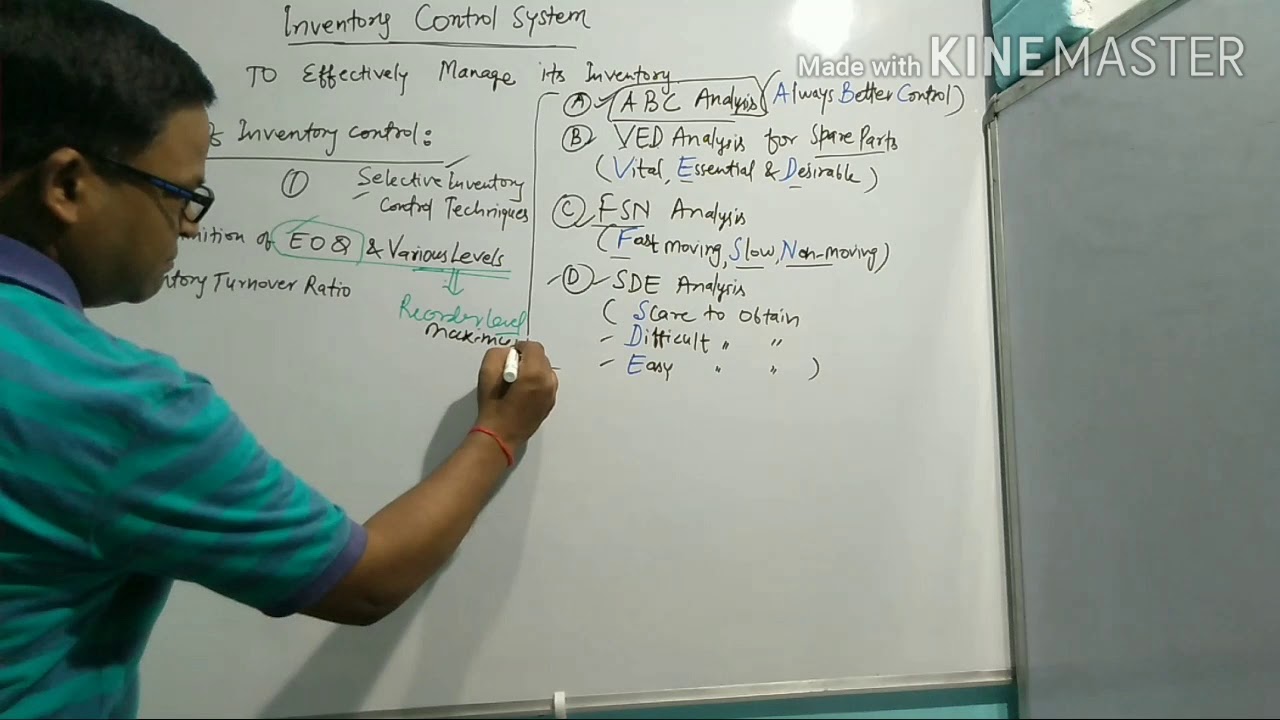 Inventory Control System
To Effectively Manage its Inventory
Inventory control:
① Selective Inventory
Control Techniques
of EOQ & Various Levels
Turnover Ratio
Reorder level
Ⓐ ABC Analysis (Always Better Control)
Ⓑ VED Analysis for Spare Parts
(Vital, Essential & Desirable)
Ⓒ FSN Analysis
(Fast moving, Slow, Non-moving)
Ⓓ SDE Analysis
( Scare to obtain
- Difficult " "
- Easy " " )
Made with KINEMASTER